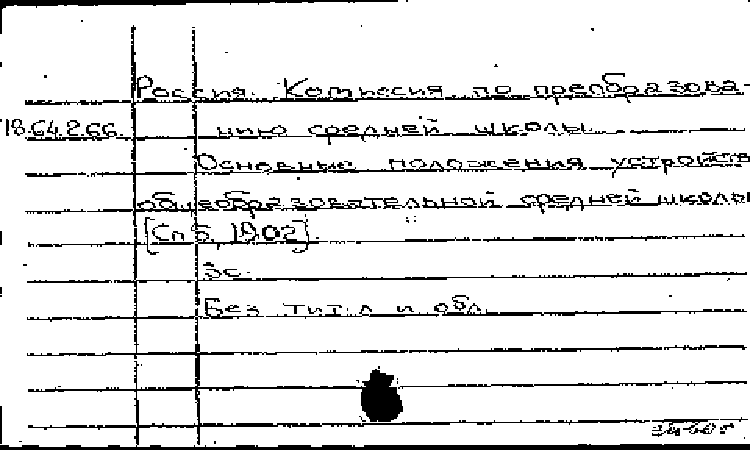 Россия. Комиссия по преобразова-
18.64.2.66. нию средней школы.
Основные положения устройств
общеобразовательной средней школы
[Спб, 1902].
3с.
Без тит.л и обл.